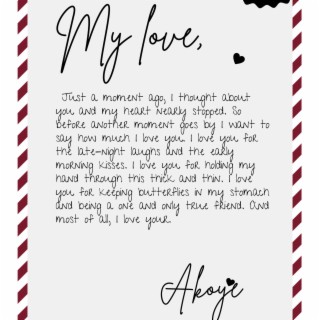 My love,
Just a moment ago, I thought about
you and my heart nearly stopped. So
before another moment goes by I want to
say how much I love you. I love you for
the late-night laughs and the early
morning kisses. I love you for holding my
hand through this thick and thin. I love
you for keeping butterflies in my stomach
and being a one and only true friend. And
most of all, I love your.
Akoye